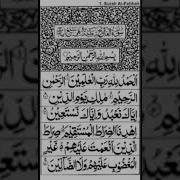 1. Surah Al-Fatihah
بِسْمِ اللّٰهِ الرَّحْمٰنِ الرَّحِيْمِ
اَلْحَمْدُ لِلّٰهِ رَبِّ الْعٰلَمِيْنَ الرَّحْمٰنِ
الرَّحِيْمِ مٰلِكِ يَوْمِ الدِّيْنِ
اِيَّاكَ نَعْبُدُ وَاِيَّاكَ نَسْتَعِيْنُ
اِهْدِنَا الصِّرَاطَ الْمُسْتَقِيْمَ صِرَاطَ
الَّذِيْنَ اَنْعَمْتَ عَلَيْهِمْ غَيْرِ
الْمَغْضُوْبِ عَلَيْهِمْ وَلَا الضَّآلِّيْنَ